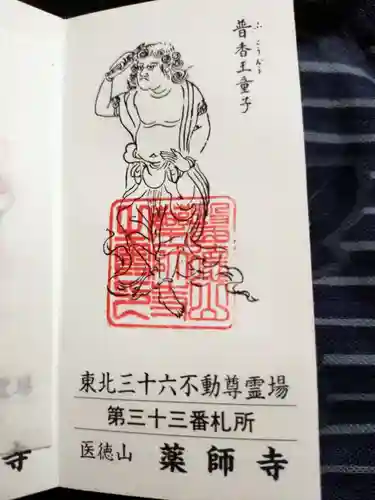 普香王童子
ふこうおう
東北三十六不動尊霊場
第三十三番札所
医徳山 薬師寺
寺